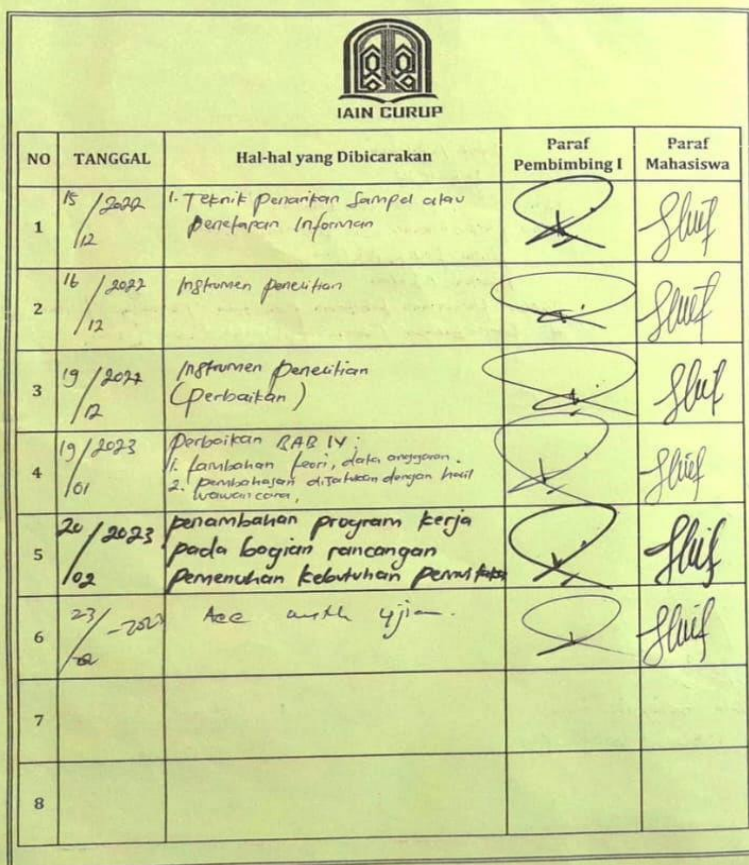 IAIN CURUP
NO TANGGAL Hal-hal yang Dibicarakan Paraf Pembimbing I Paraf Mahasiswa
1 15/12 2022 1. Teknik penarikan Sampel atau
penetapan Informan
2 16/12 2022 Instrumen penelitian
3 19/12 2022 Instrumen penelitian
(perbaikan)
4 19/01 2023 Perbaikan BAB IV :
1. tambahan teori, data anggaran.
2. pembahasan disatukan dengan hasil
wawancara,
5 20/02 2023 penambahan program kerja
pada bagian rancangan
pemenuhan kebutuhan pemustaka
6 23/02 - 2023 Acc untk ujian.
7
8